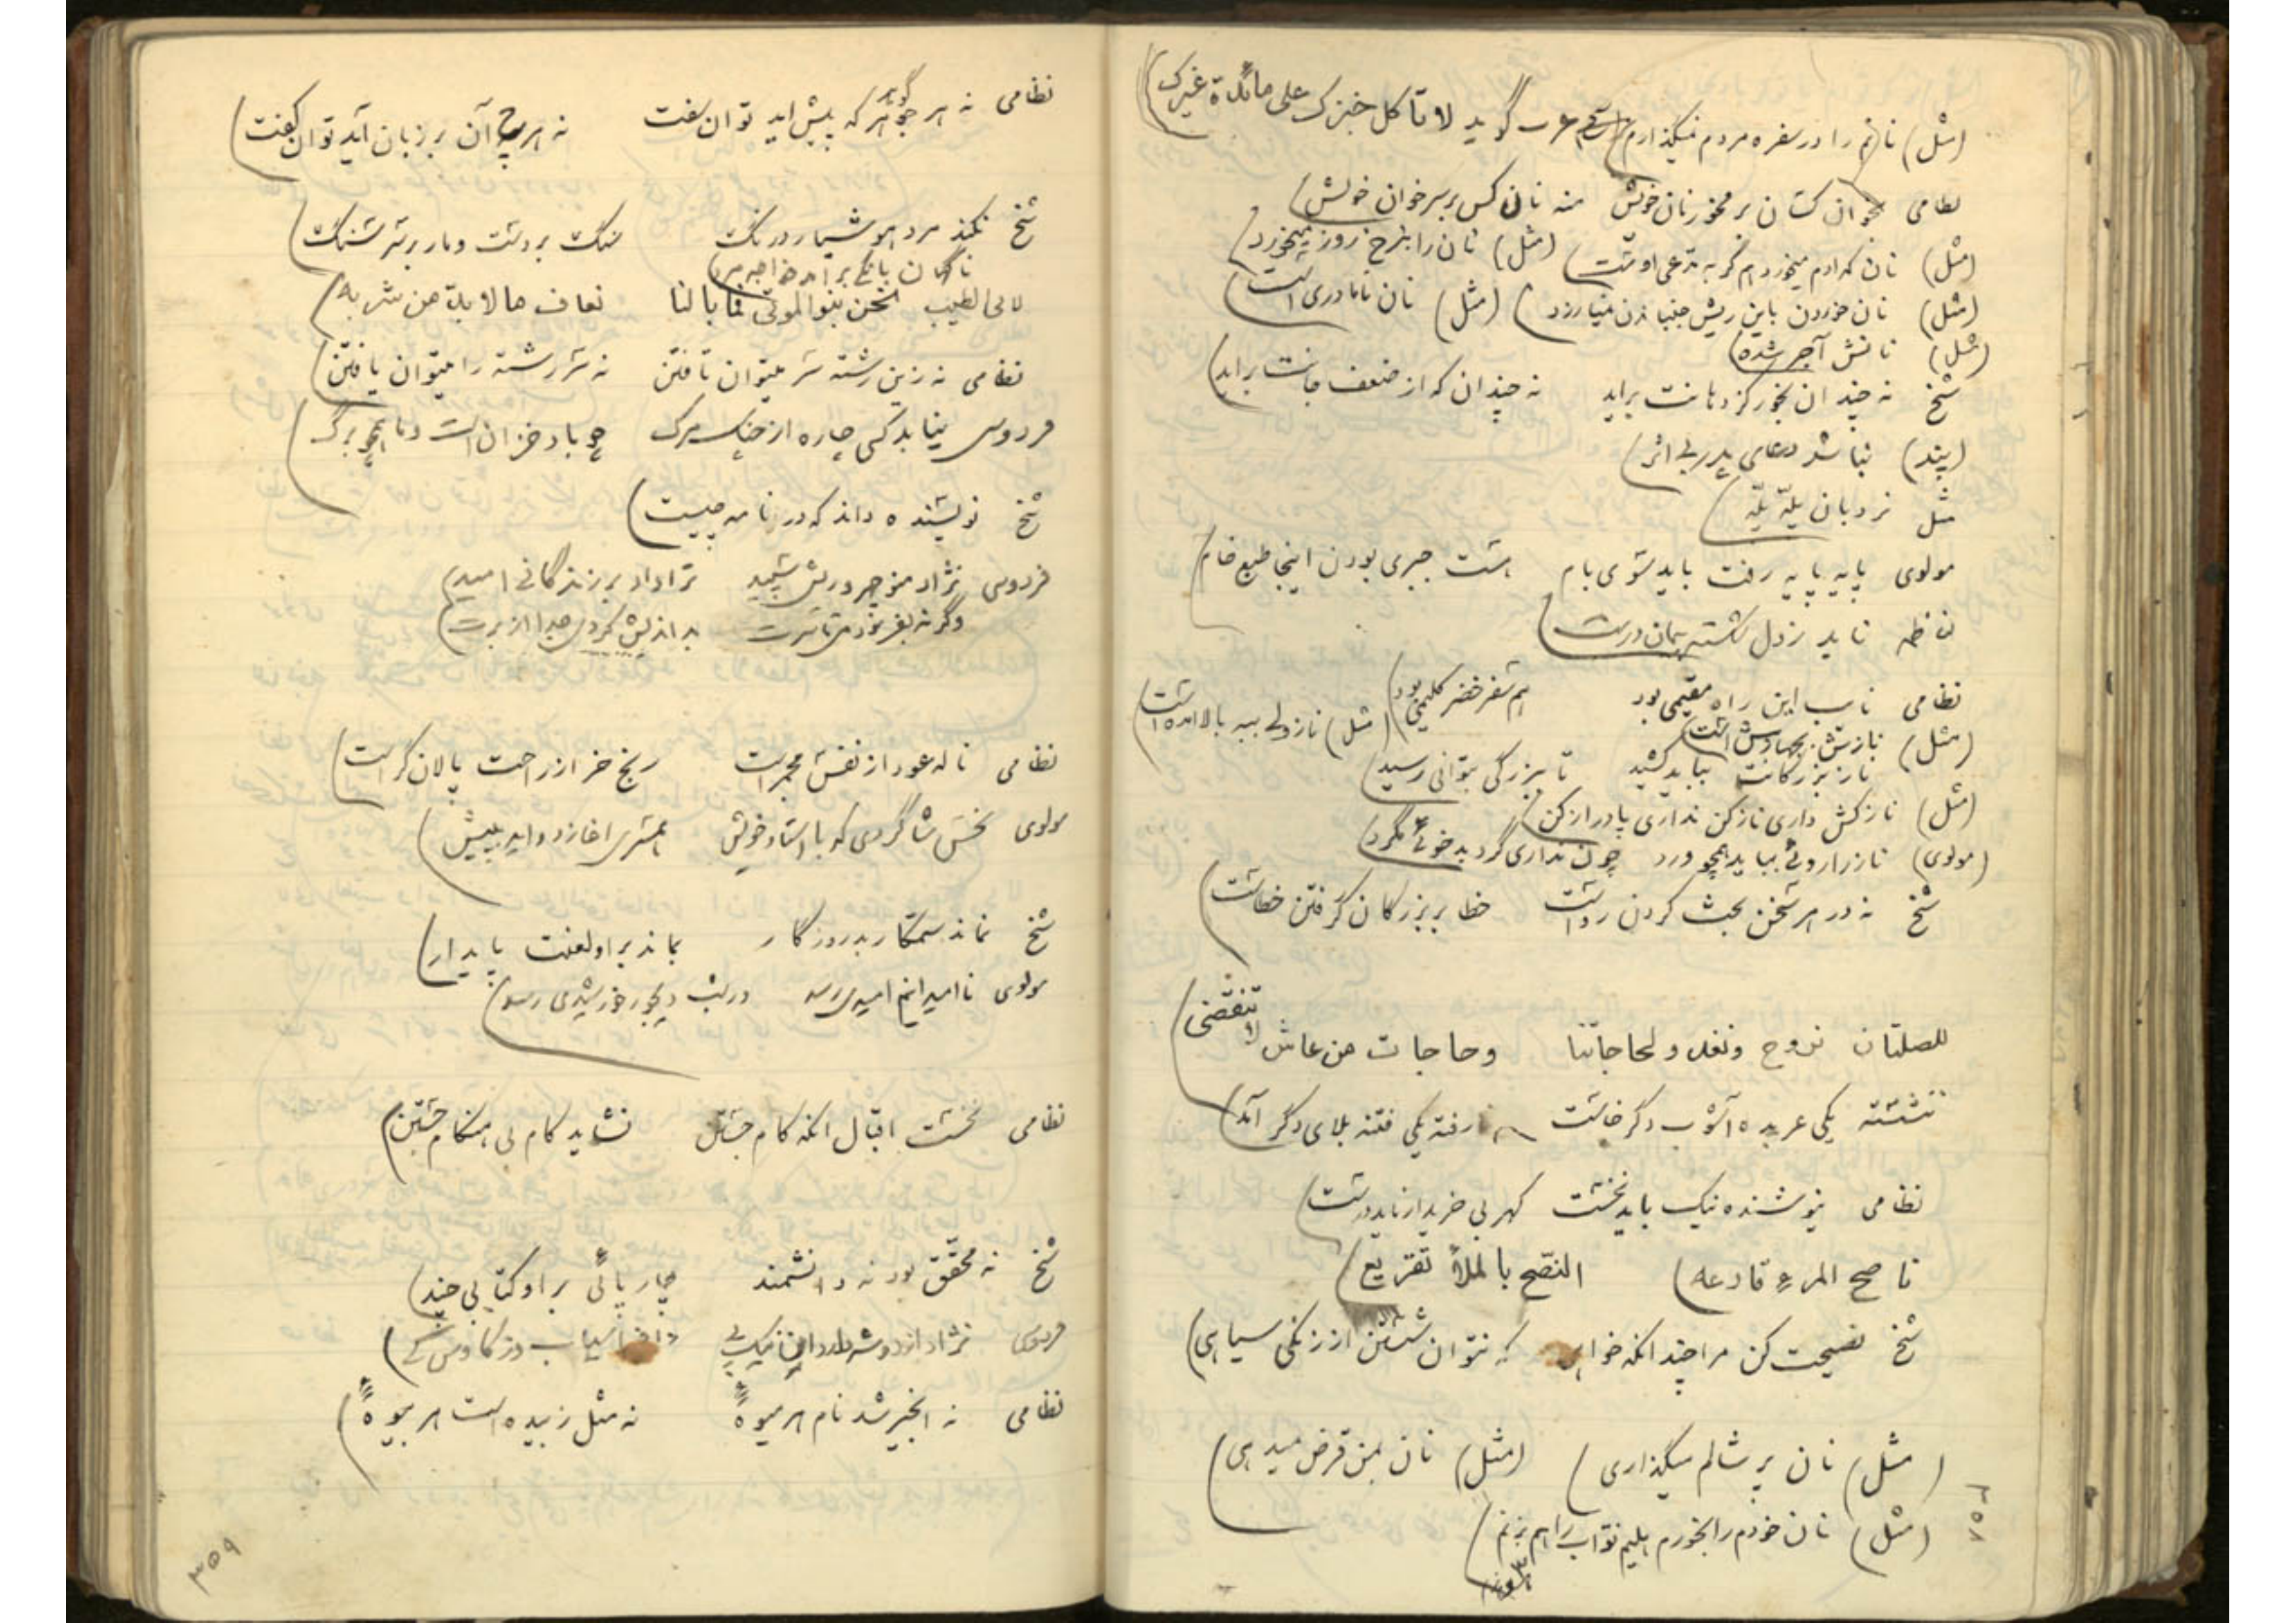 (مثل) نانم را در سفره مردم نمیگذارم) عرب گوید لا تاکل خبزک علی مائدة غیرک)
نظامی بخوان کسان بر مخور نان خویش منه نان کس بر سر خوان خویش)
(مثل) نان که ادم میخورد ام گربه مدعی اوست) (مثل) نان را بنرخ روز میخورد)
(مثل) نان خوردن باین ریش جنبانیدن نمیارزد) (مثل) نان نامادری است)
(مثل) نانش آجر شده)
شیخ نه چندان بخور کز دهانت براید نه چندان که از ضعف جانت براید)
(پند) نباشد دعای پدر بی اثر)
مثل نردبان پله پله)
مولوی پایه پایه رفت باید سوی بام هست جبری بودن اینجا طمع خام)
ناظم ناید ز دل شکسته پیمان درست)
نظامی نایب این راه مقیمی بود هم سفر خضر کلیمی بود) (مثل) نازولی بیبه بالا امده است)
(مثل) نازش بجهازش است)
ناز بزرگانت بباید کشید تا ببزرگی بتوانی رسید)
(مثل) نازکش داری نازکن نداری پا دراز کن)
(مولوی) ناز را روئی بباید همچو ورد چون نداری گرد بدخوئی مگرد)
شیخ نه در هر سخن بحث کردن رواست خطا بر بزرگان گرفتن خطاست)
للصلتان نروح ونغدو لحاجاتنا وحاجات من عاش لا تنقضی)
ننشسته یکی عربده آشوب دگر خاست نارفته یکی فتنه بلای دگر آمد)
نظامی نیوشنده نیک باید نخست گهر بی خریدار ناید درست)
ناصح المرء قادعه) النصح بالملأ تقریع)
شیخ نصیحت کن مرا چندانکه خواهی که نتوان شستن از زنگی سیاهی)
(مثل) نان بر شالم میگذاری) (مثل) نان بمن قرض میدهی)
(مثل) نان خودم را بخورم هلیم نواب را هم بزنم)
نظامی نه هر جوهر گوهر که پیش اید توان سفت نه هر چ آن بر زبان آید توان گفت)
شیخ نکند مرد هوشیار درنگ سنگ بر دست و مار بر سر سنگ)
ناگهان بانگی برامد خواجه مرد)
لابی الطیب نحن بنو الموتی فما بالنا نعاف ما لا بد من شربه)
نظامی نه زین رشته سر میتوان تافتن نه سر رشته را میتوان یافتن)
فردوسی نیابد کسی چاره از چنگ مرگ چو باد خزان است و ما همچو برگ)
شیخ نویسنده داند که در نامه چیست)
فردوسی نژاد منوچهر و ریش سپید ترا داد بر زندگانی امید)
وگرنه بفرمودمی تا سرت بداندیش کردی جدا از برت)
نظامی ناله عود از نفس مجمر است رنج خر از راحت پالان گر است)
مولوی نحس شاگردی که با استاد خویش همسری اغازد و اید به پیش)
شیخ نماند ستمکار بد روزگار بماند بر او لعنت پایدار)
مولوی ناامیدانیم امیدی رسد در شب دیجور خورشیدی رسد)
نظامی نخست اقبال انگه کام جستن نشاید کام بی هنگام جستن)
شیخ نه محقق بود نه دانشمند چار پائی بر او کتابی چند)
فردوسی نژاد از دو سو دارد این نیک پی ز افراسیاب و ز کاوس کی)
نظامی نه انجیر شد نام هر میوهٔ نه مثل زبیده است هر بیوهٔ)
۳۵۹